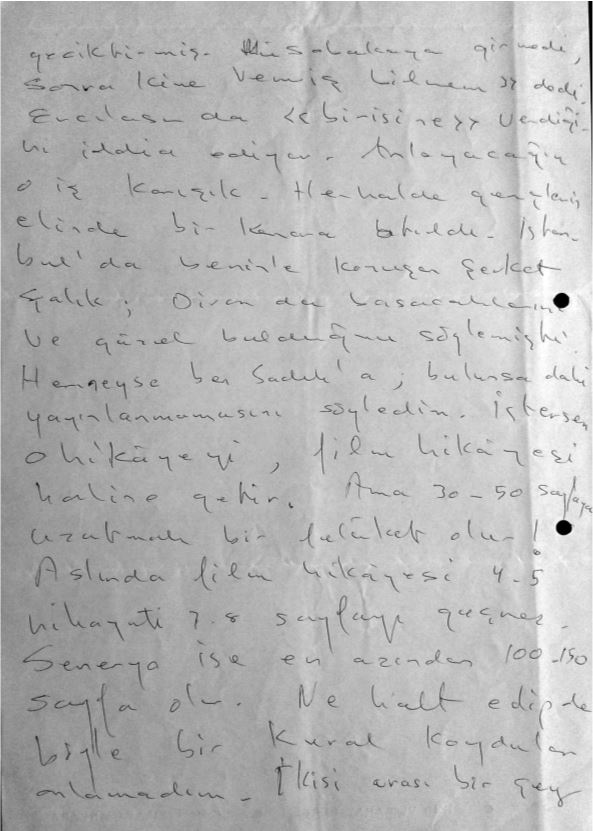 geciktirmiş. Müsabakaya girmedi,
sonra kine vermiş bilmem >> dedi.
da << birisine >> verdiği-
ni iddia ediyor. Anlayacağın
o iş karışık. Herhalde gençlerin
elinde bir kenara atıldı. İstan-
bul'da benimle konuşan Şevket
Çalık; Divan da basacaklarını
ve güzel bulduğunu söylemişti.
Herneyse ben Sadık'a; bulunsa dahi
yayınlanmamasını söyledim. İstersen
o hikâyeyi, film hikâyesi
haline getir. Ama 30-50 sayfaya
uzatmak bir felâket olur!
Aslında film hikâyesi 4-5
nihayati 7-8 sayfayı geçmez.
Senaryo ise en azından 100-150
sayfa olur. Ne halt edip de
böyle bir kural koydular
anlamadım. İkisi arası bir şey